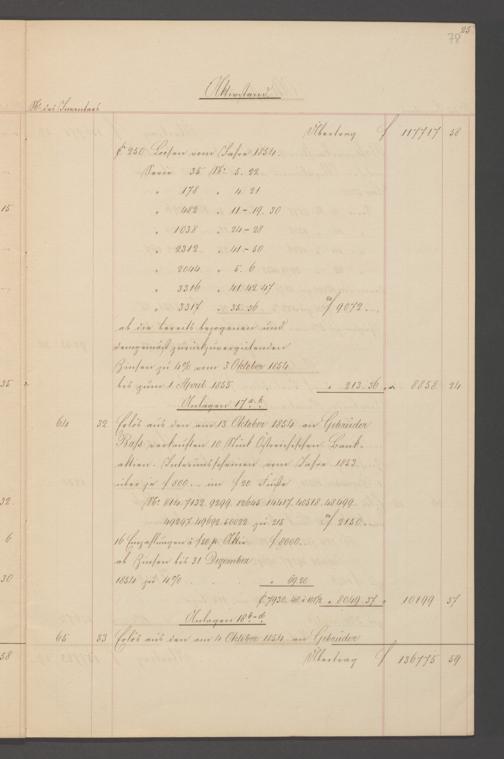 25
78
Aktivstand
№ des Inventars
Übertrag f 117717 58
f 250 Loosen vom Jahre 1854.
Serie 35 № 5. 22
" 178 " 4. 21
" 482 " 11-19. 30
" 1038 " 24-28
" 2312 " 41-50
" 2044 " 5. 6
" 3316 " 41. 42. 47
" 3317 " 35. 36 f 9072 _
ab die bereits bezogenen und
demgemäß zurückzuvergütenden
Zinsen zu 4% vom 3 Oktober 1854
bis zum 1 April 1855 " 213. 36 " 8858 24
Anlagen 17 a. b.
64 32 Erlös aus den am 13 Oktober 1854 an Gebrüder
verkauften 10 Stück Österreichischen Bank-
aktien. Interimsscheinen vom Jahre 1853
über je f 800 _ im f 20 Fuße
№ 814. 7132. 9299. 12645. 14417. 40518. 48499.
49297. 49692. 50022 zu 215 f 2150 _
16 Einzahlungen à p. Aktie f 8000 _
ab Zinsen bis 31 Dezember
1854 zu 4% " 69. 20
f 7930. 40 " 8049. 37 " 10199 37
Anlagen 18
65 33 Erlös aus den am 4 Oktober 1854 an Gebrüder
Übertrag f 136775 59
15
35
32
6
30
58